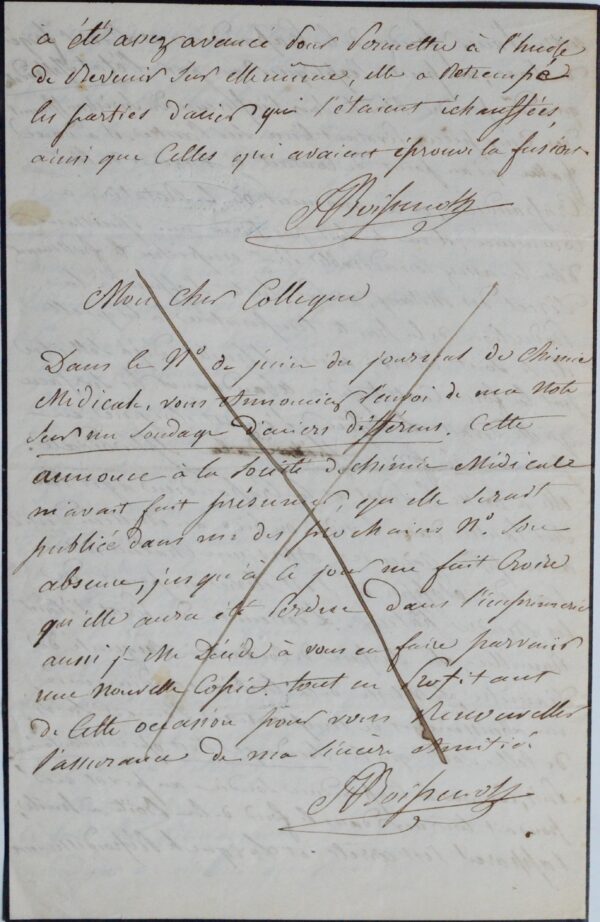 a été assez avancé pour permettre à l'huile
de Revenir sur elle même, elle a Retrempé
les parties d'acier qui s'étaient échauffées
ainsi que Celles qui avaient éprouvé la fusion.
Mon Cher Collegue
Dans le N.o de juin du journal de Chimie
Médicale, vous Annonciez l'envoi de ma Note
Sur un Soudage d'aciers différens. Cette
annonce à la Société de chimie Médicale
m'avait fait présumer, qu'elle serait
publiée dans un des prochains N.o Son
absence, jusqu'à ce jour me fait Croire
qu'elle aura été perdue dans l'imprimerie
aussi je me Décide à vous en faire parvenir
une nouvelle Copie. tout en Profitant
de Cette occasion pour vous Renouveller
l'assurance de ma sincère Amitié.